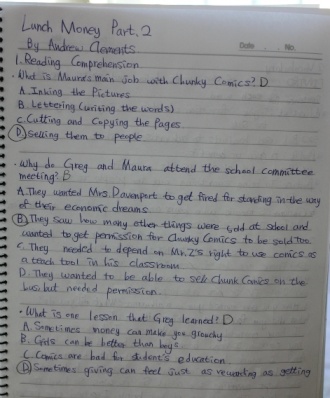 Lunch Money Part. 2
By Andrew Clements
Date . . No.
1. Reading Comprehension
• What is Maura's main job with Chunky Comics? D
A. Inking the Pictures
B. Lettering (writing the words)
C. Cutting and Copying the Pages
D. Selling them to people
• Why do Greg and Maura attend the school committee
meeting? B
A. They wanted Mrs. Davenport to get fired for standing in the way
of their economic dreams
B. They saw how many other things were sold at school and
wanted to get permission for Chunky Comics to be sold too.
C. They needed to depend on Mr. Z's right to use comics as
a teach tool in his classroom
D. They wanted to be able to sell Chunk Comics on the
bus, but needed permission.
• What is one lesson that Greg learned? D
A. Sometimes money can make you grouchy
B. Girls can be better than boys
C. Comics are bad for student's education
D. Sometimes giving can feel just as rewarding as getting